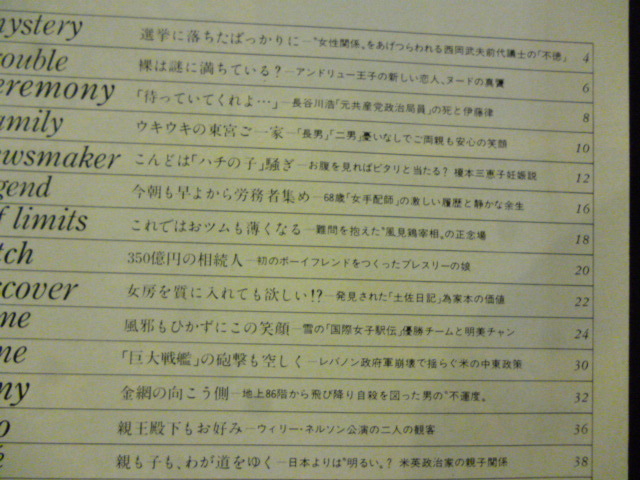 mystery 選挙に落ちたばっかりに—"女性関係"をあげつらわれる西岡武夫前代議士の「不徳」 4
rouble 裸は謎に満ちている？—アンドリュー王子の新しい恋人、ヌードの真贋 6
eremony 「待っていてくれよ…」—長谷川浩「元共産党政治局員」の死と伊藤律 8
amily ウキウキの東宮ご一家—「長男」「二男」憂いなしでご両親も安心の笑顔 10
ewsmaker こんどは「ハチの子」騒ぎ—お腹を見ればピタリと当たる？ 榎本三恵子妊娠説 12
gend 今朝も早よから労務者集め—68歳「女手配師」の激しい履歴と静かな余生 16
f limits これではおツムも薄くなる—難問を抱えた"風見鶏宰相"の正念場 18
tch 350億円の相続人—初のボーイフレンドをつくったプレスリーの娘 20
cover 女房を質に入れても欲しい!?—発見された「土佐日記」為家本の価値 22
me 風邪もひかずにこの笑顔—雪の「国際女子駅伝」優勝チームと明美チャン 24
ne 「巨大戦艦」の砲撃も空しく—レバノン政府軍崩壊で揺らぐ米の中東政策 30
ny 金網の向こう側—地上86階から飛び降り自殺を図った男の"不運度" 32
o 親王殿下もお好み—ウィリー・ネルソン公演の二人の観客 36
親も子も、わが道をゆく—日本よりは"明るい"？ 米英政治家の親子関係 38